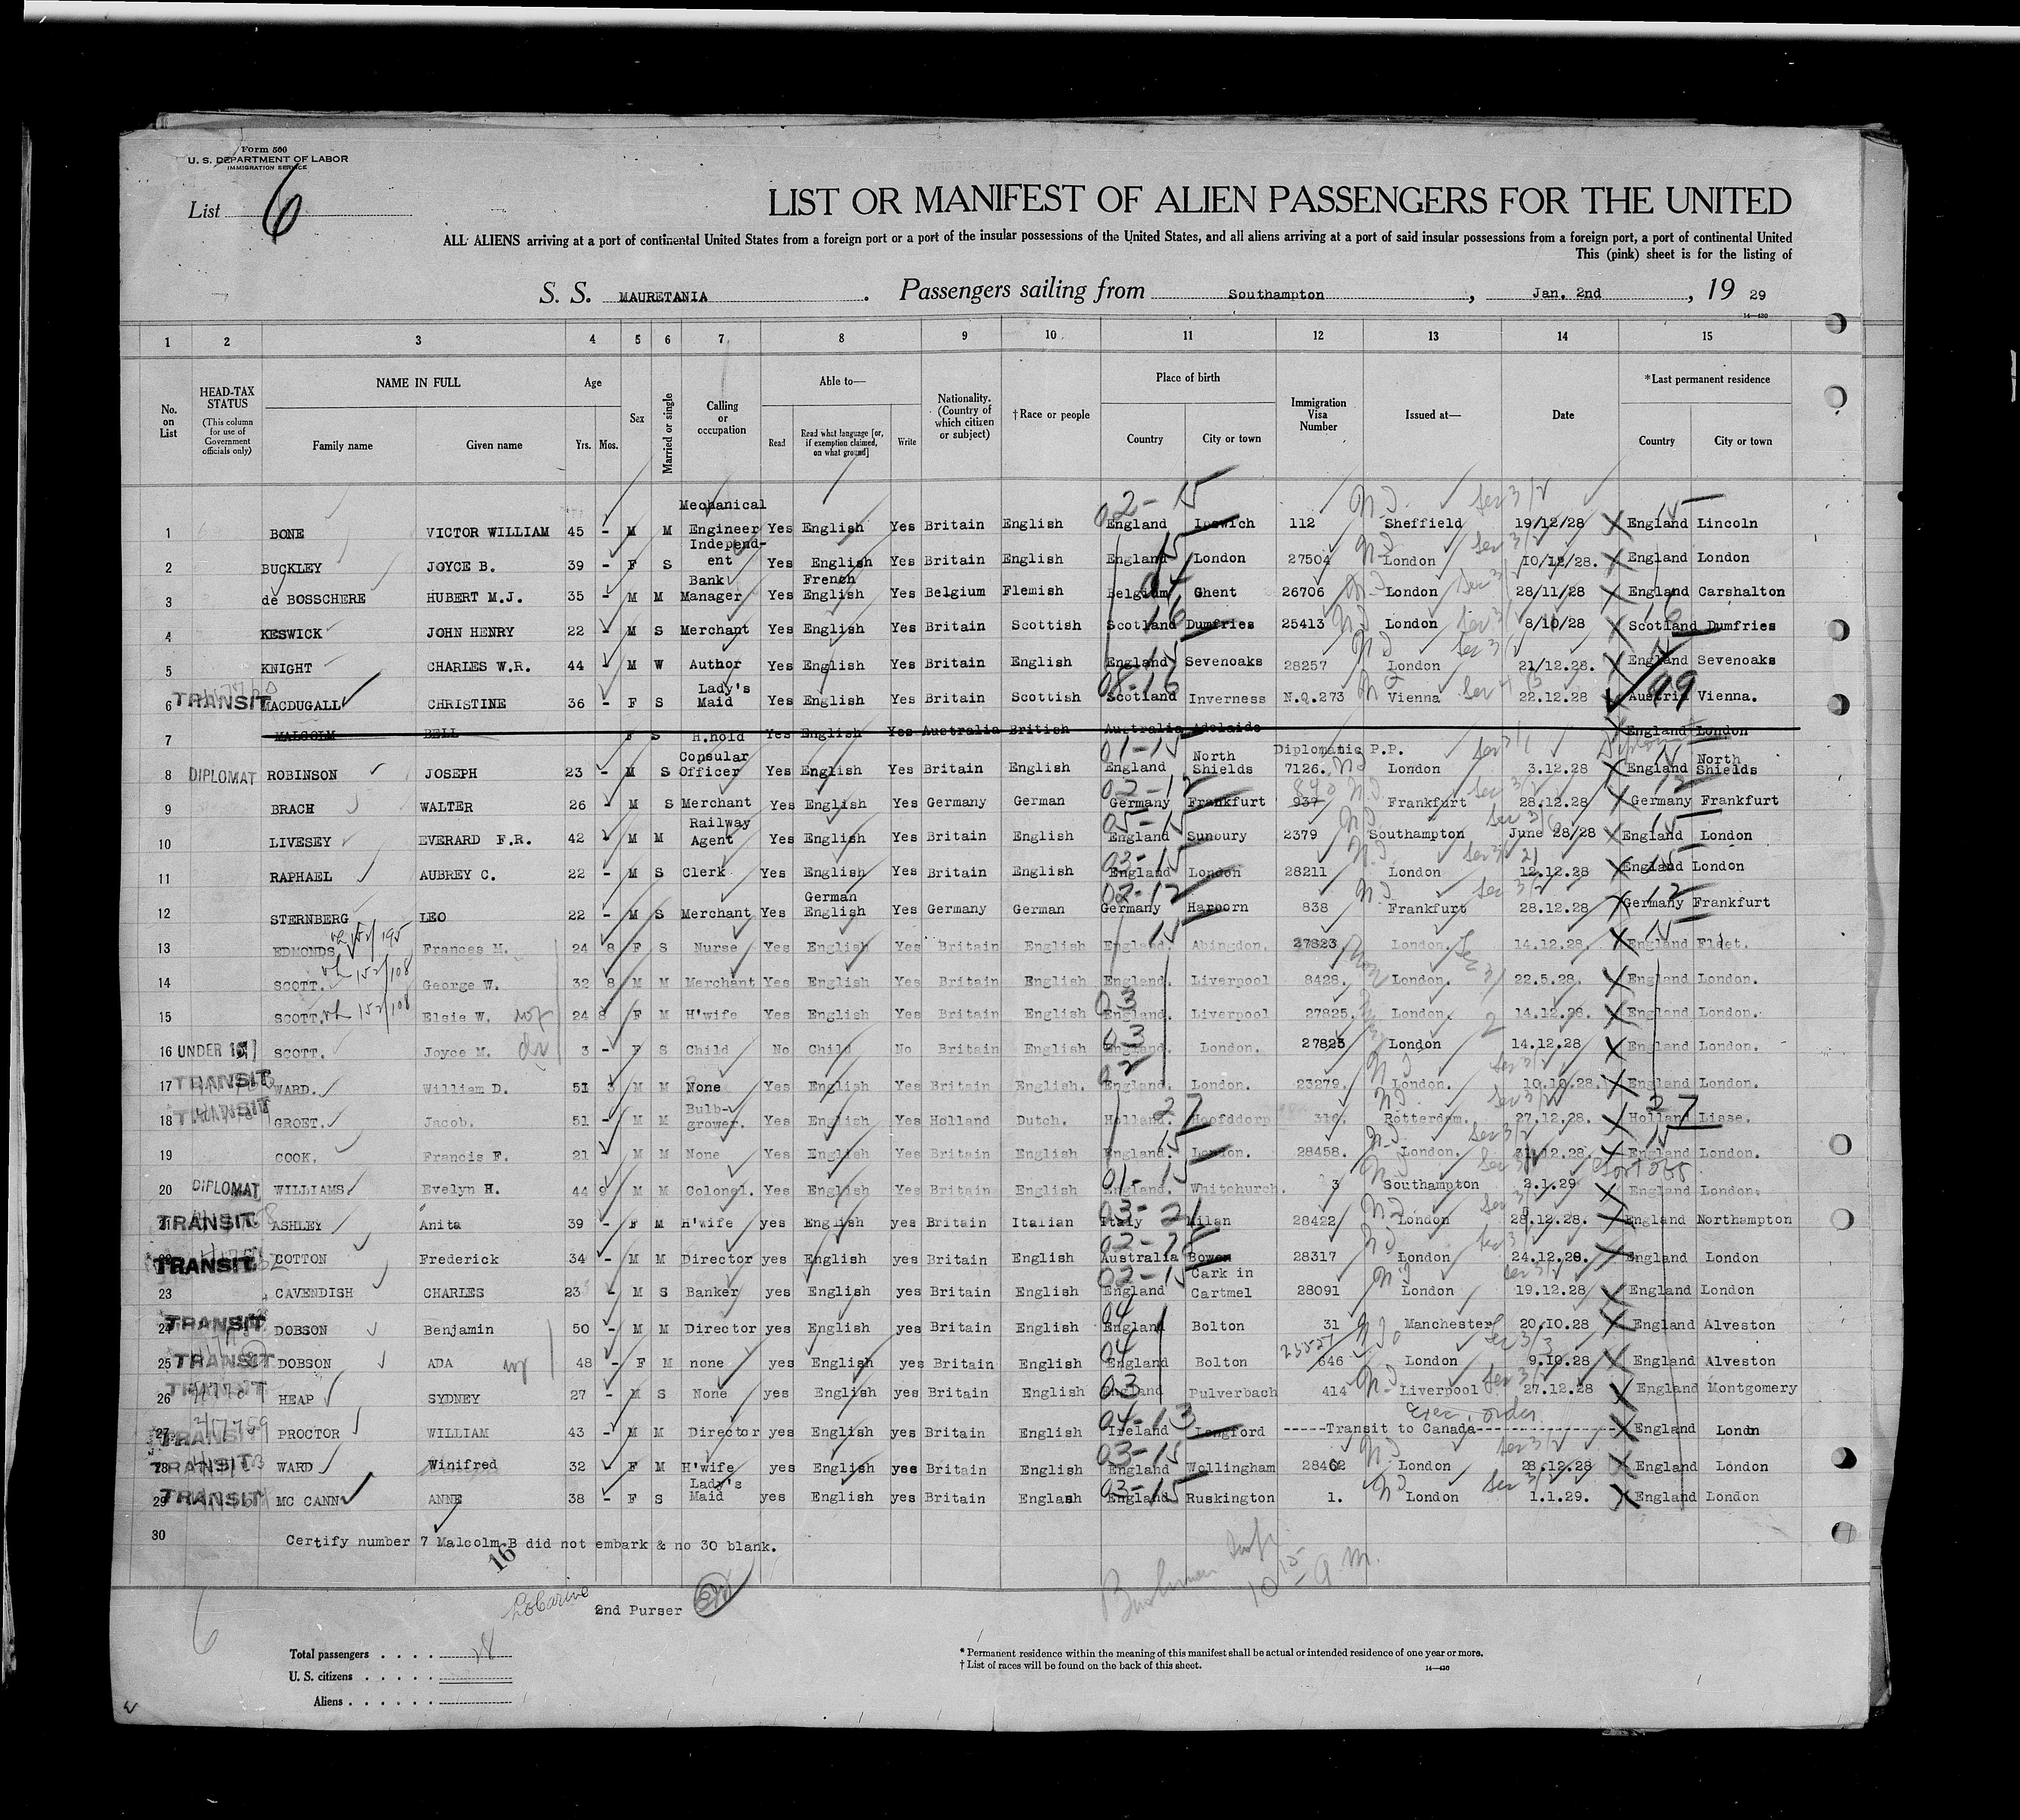 Form 500
U. S. DEPARTMENT OF LABOR
IMMIGRATION SERVICE
List 6
LIST OR MANIFEST OF ALIEN PASSENGERS FOR THE UNITED
ALL ALIENS arriving at a port of continental United States from a foreign port or a port of the insular possessions of the United States, and all aliens arriving at a port of said insular possessions from a foreign port, a port of continental United
This (pink) sheet is for the listing of
S. S. MAURETANIA. Passengers sailing from Southampton, Jan. 2nd, 19 29
14—430
1 2 3 4 5 6 7 8 9 10 11 12 13 14 15
No. on List HEAD-TAX STATUS (This column for use of Government officials only) NAME IN FULL Family name Given name Age Yrs. Mos. Sex Married or single Calling or occupation Able to— Read Read what language [or, if exemption claimed, on what ground] Write Nationality. (Country of which citizen or subject) †Race or people Place of birth Country City or town Immigration Visa Number Issued at— Date *Last permanent residence Country City or town
1 BONE VICTOR WILLIAM 45 - M M Mechanical Engineer Yes English Yes Britain English England Ipswich 112 Sheffield 19/12/28 England Lincoln
2 BUCKLEY JOYCE B. 39 - F S Independ- ent Yes English Yes Britain English England London 27504 London 10/12/28. England London
3 de BOSSCHERE HUBERT M.J. 35 - M M Bank Manager Yes French English Yes Belgium Flemish Belgium Ghent 26706 London 28/11/28 England Carshalton
4 KESWICK JOHN HENRY 22 - M S Merchant Yes English Yes Britain Scottish Scotland Dumfries 25413 London 8/10/28 Scotland Dumfries
5 KNIGHT CHARLES W.R. 44 - M W Author Yes English Yes Britain English England Sevenoaks 28257 London 21/12.28. England Sevenoaks
6 TRANSIT MACDUGALL CHRISTINE 36 - F S Lady's Maid Yes English Yes Britain Scottish Scotland Inverness N.Q.273 Vienna 22.12.28 Austria Vienna.
7 MALCOLM BELL F S H.hold Yes English Yes Australia British Australia Adelaide England London
8 DIPLOMAT ROBINSON JOSEPH 23 - M S Consular Officer Yes English Yes Britain English England North Shields Diplomatic P.P. 7126. London 3.12.28 England North Shields
9 BRACH WALTER 26 - M S Merchant Yes English Yes Germany German Germany Frankfurt 937 Frankfurt 28.12.28 Germany Frankfurt
10 LIVESEY EVERARD F.R. 42 - M M Railway Agent Yes English Yes Britain English England Sunbury 2379 Southampton June 28/28 England London
11 RAPHAEL AUBREY C. 22 - M S Clerk Yes English Yes Britain English England London 28211 London 12.12.28 England London
12 STERNBERG LEO 22 - M S Merchant Yes German English Yes Germany German Germany 838 Frankfurt 28.12.28 Germany Frankfurt
13 EDMONDS Frances M. 24 8 F S Nurse Yes English Yes Britain English England. Abingdon. 27823. London. 14.12.28. England Fleet.
14 SCOTT. George W. 32 8 M M Merchant Yes English Yes Britain English England. Liverpool 8428. London. 22.5.28. England London.
15 SCOTT. Elsie W. 24 8 F M H'wife Yes English Yes Britain English England. Liverpool 27825. London. 14.12.28. England London.
16 UNDER 16 SCOTT. Joyce M. 3 - F S Child No Child No Britain English England. London. 27825 London 14.12.28 England London.
17 TRANSIT WARD. William D. 51 3 M M None Yes English Yes Britain English. England. London. 23279. London. 10.10.28. England London.
18 TRANSIT GROET. Jacob. 51 - M M Bulb- grower. Yes English Yes Holland Dutch. Holland. Hoofddorp 316. Rotterdam. 27.12.28. Holland Lisse.
19 COOK. Francis F. 21 M M None Yes English Yes Britain English England. London. 28458. London. 31.12.28. England London.
20 DIPLOMAT WILLIAMS Evelyn H. 44 9 M M Colonel. Yes English Yes Britain English England. Whitchurch. 3 Southampton 2.1.29 England London.
21 TRANSIT ASHLEY Anita 39 - F M H'wife yes English yes Britain Italian Italy Milan 28422 London 28.12.28. England Northampton
22 TRANSIT COTTON Frederick 34 - M M Director yes English yes Britain English Australia Bowen 28317 London 24.12.28. England London
23 CAVENDISH CHARLES 23 - M S Banker yes English yes Britain English England Cark in Cartmel 28091 London 19.12.28 England London
24 TRANSIT DOBSON Benjamin 50 - M M Director yes English yes Britain English England Bolton 31 Manchester 20.10.28 England Alveston
25 TRANSIT DOBSON ADA 48 - F M none yes English yes Britain English England Bolton 646 London 9.10.28 England Alveston
26 TRANSIT HEAP SYDNEY 27 - M S None yes English yes Britain English England Pulverbach 414 Liverpool 27.12.28 England Montgomery
27 TRANSIT PROCTOR WILLIAM 43 - M M Director yes English yes Britain English Ireland Longford -----Transit to Canada----- Exec. order England Londn
28 TRANSIT WARD Winifred 32 - F M H'wife yes English yes Britain English England Wellingham 28462 London 28.12.28 England London
29 TRANSIT MC CANN ANNE 38 - F S Lady's Maid yes English yes Britain Englash England Ruskington 1. London 1.1.29. England London
30 Certify number 7 Malcolm B did not embark & no 30 blank.
16
2nd Purser
10 15 A.M.
6
Total passengers . . . . 28
U. S. citizens . . . . .
Aliens . . . . . .
* Permanent residence within the meaning of this manifest shall be actual or intended residence of one year or more.
† List of races will be found on the back of this sheet.
14—430